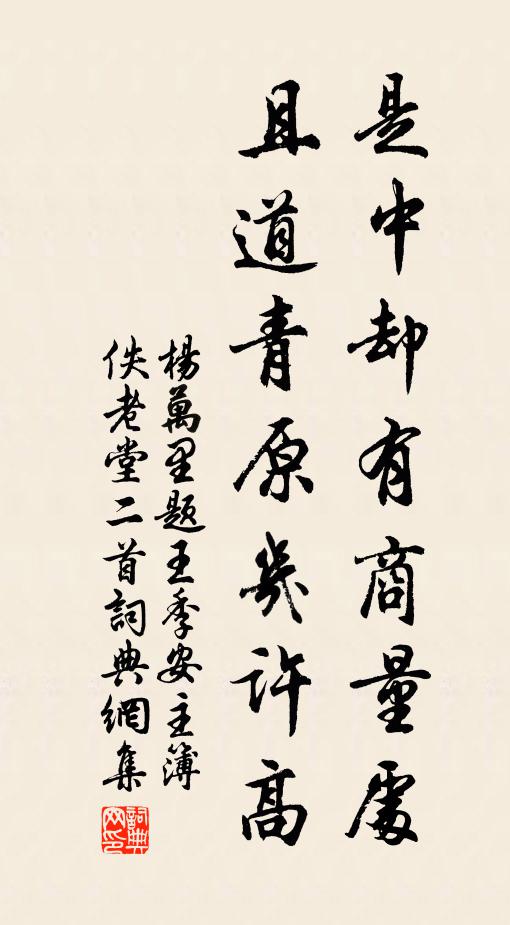 是中却有商量處
且道青原幾許高
楊萬里題王季安主簿
佚老堂二首詞典網集
詞典網印